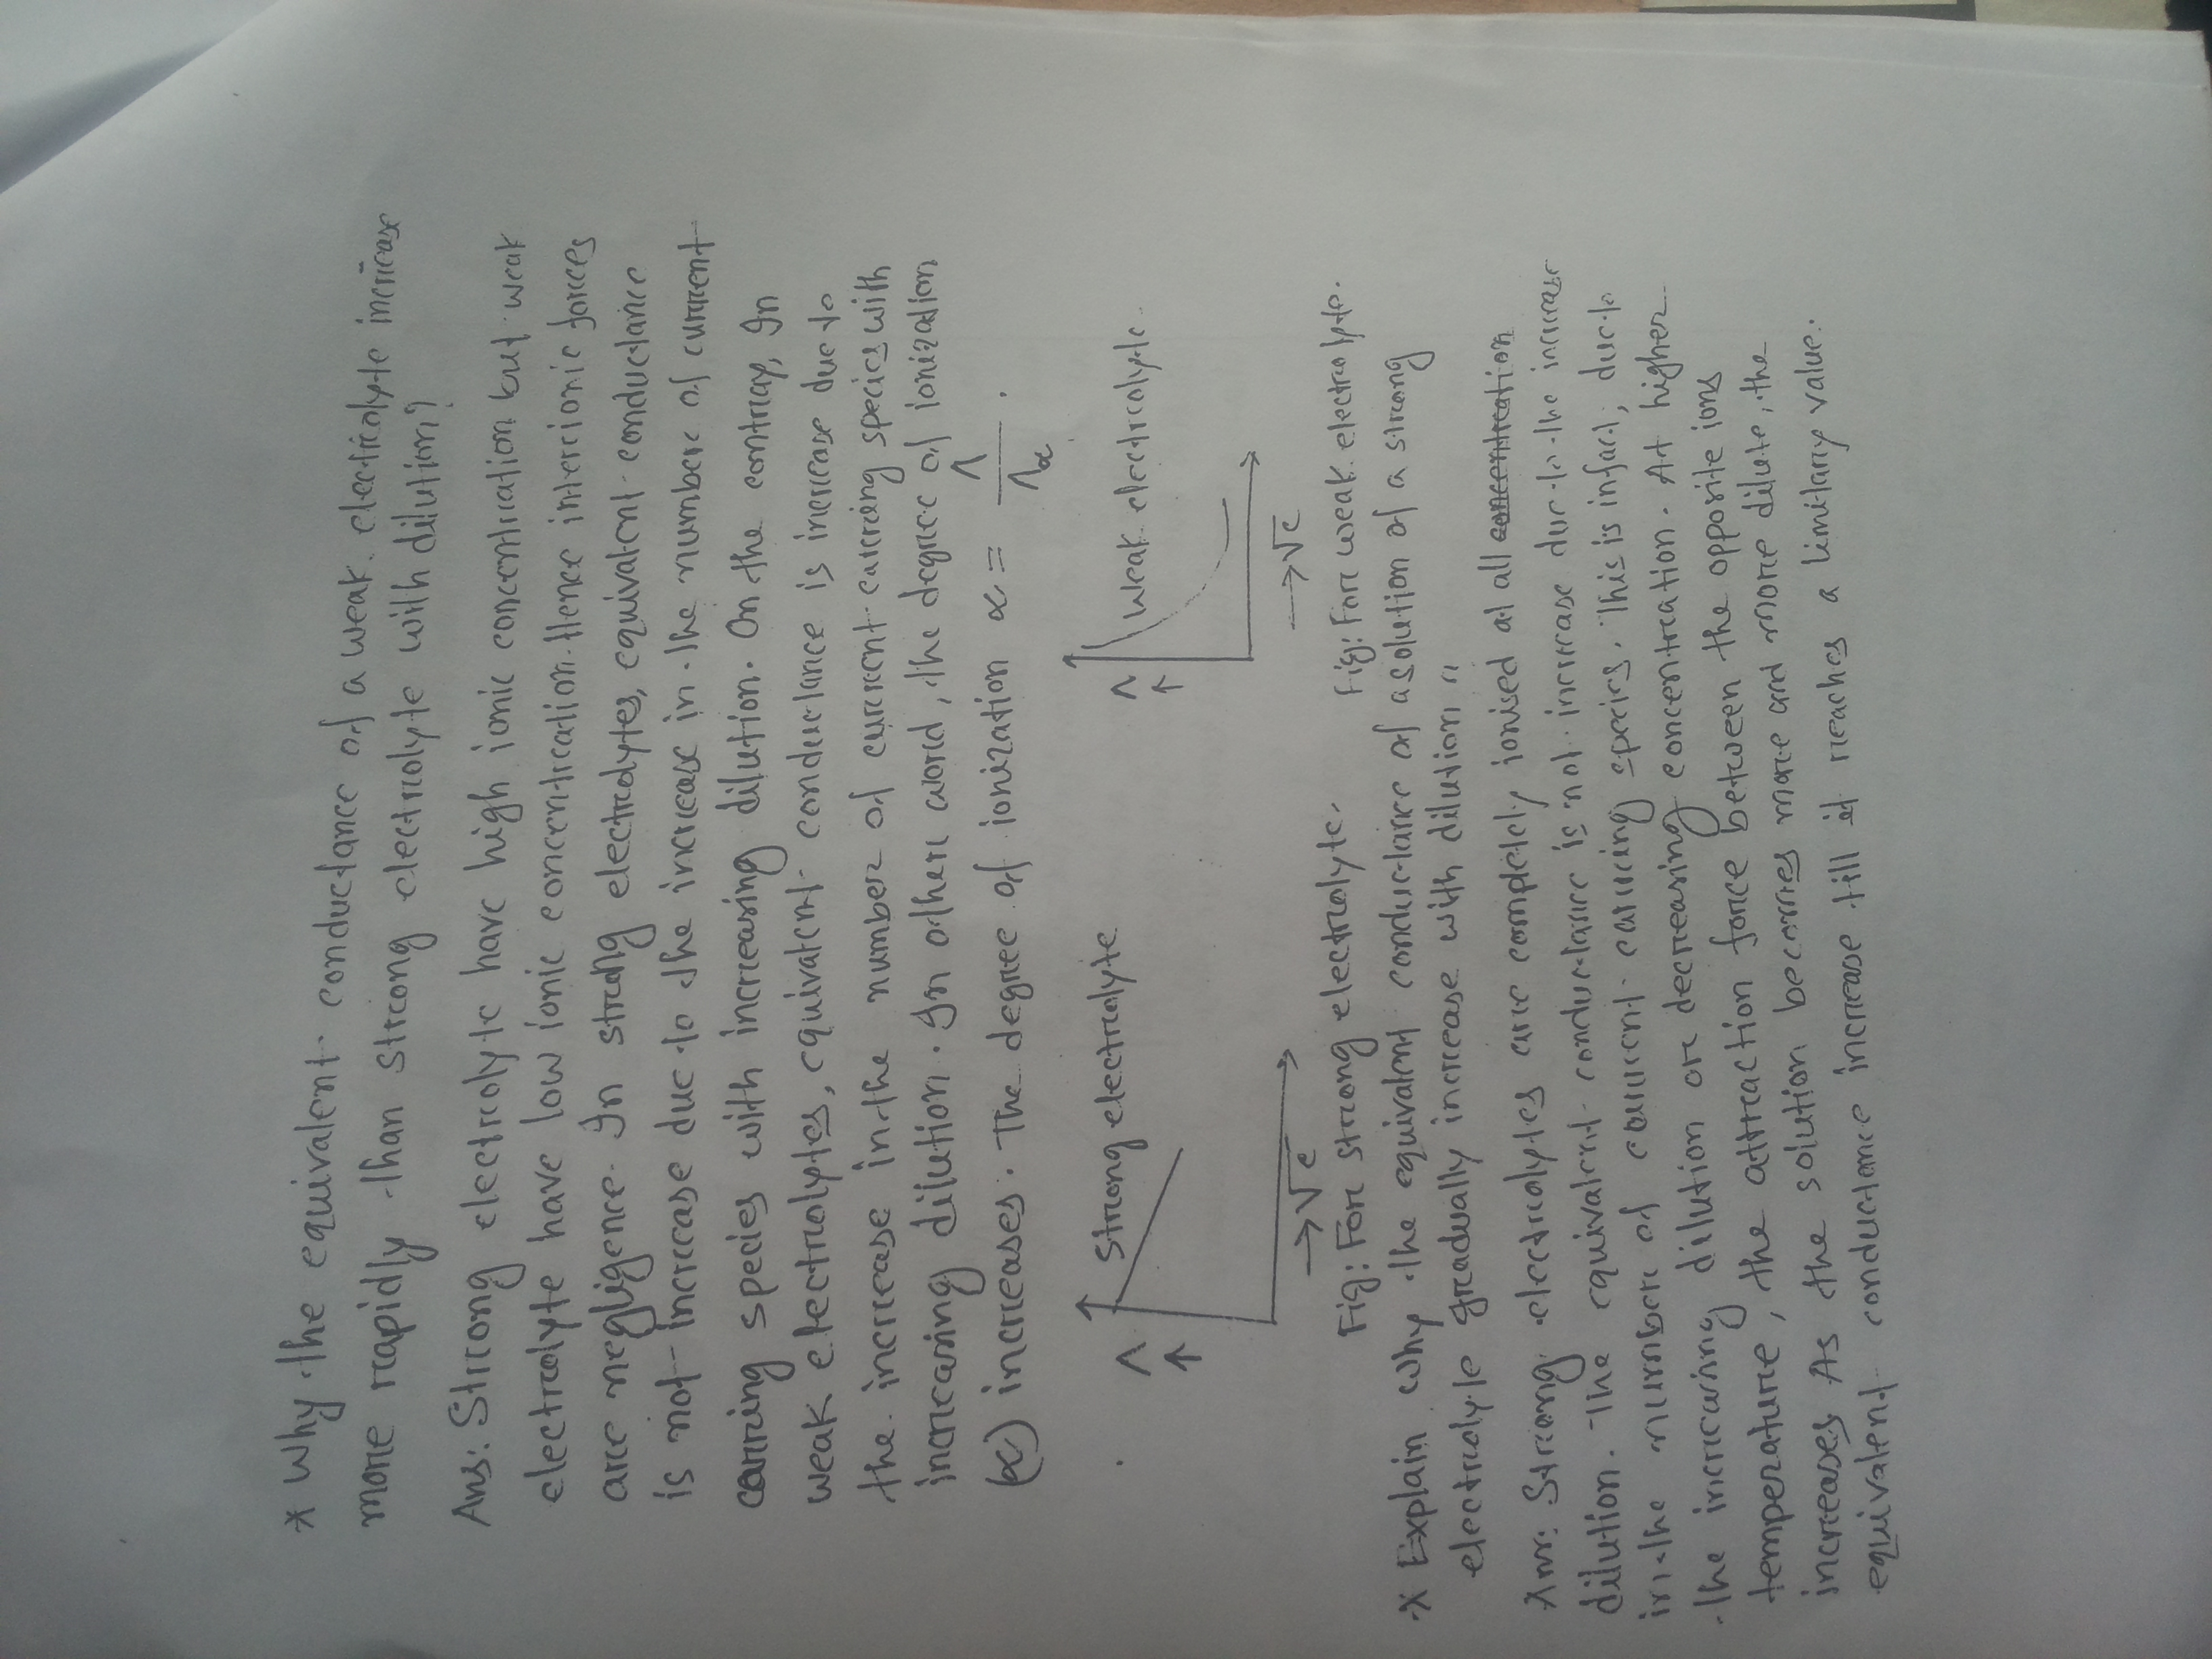 * Why the equivalent conductance of a weak electrolyte increase
more rapidly than strong electrolyte with dilution?
Ans: Strong electrolyte have high ionic concentration but weak
electrolyte have low ionic concentration. Hence interionic forces
are negligence. In strong electrolytes, equivalent conductance
is not increase due to the increase in the number of current
carring species with increasing dilution. On the contray, In
weak electrolytes, equivalent conductance is increase due to
the increase in the number of current carring species with
increasing dilution. In other word, the degree of ionization
(α) increases. The degree of ionization α = Λ/Λα.
Λ
↑
Strong electrolyte
→√c
Fig: For strong electrolyte.
Λ
↑
Weak electrolyte.
→√c
Fig: For weak electrolyte.
* Explain why the equivalent conductance of a solution of a strong
electrolyte gradually increase with dilution "
Ans: Strong electrolytes are completely ionised at all concentration
dilution. The equivalent conductance is not increase due to the increase
in the number of current carring species. This is infact, due to
the increasing dilution or decreasing concentration. At higher
temperature, the attraction force between the opposite ions
increases As the solution becomes more and more dilute, the
equivalent conductance increase till it reaches a limitary value.